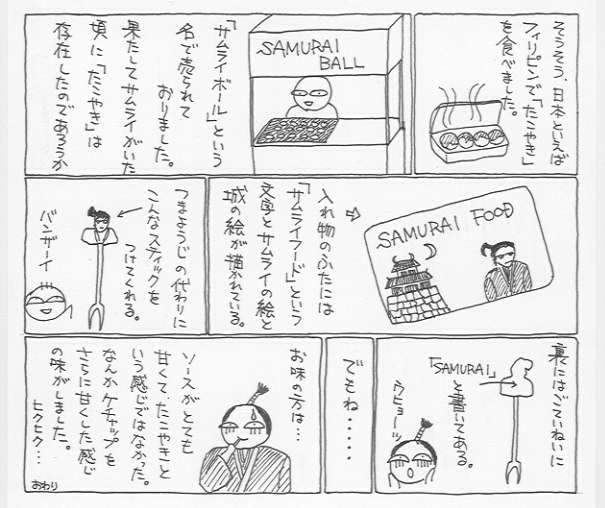 そうそう、日本といえば
フィリピンで「たこやき」
を食べました。
SAMURAI
BALL
「サムライボール」という
名で売られて
おりました。
果たしてサムライがいた
頃に「たこやき」は
存在したのであろうか
SAMURAI FOOD
⇨
入れ物のふたには
「サムライフード」という
文字とサムライの絵と
城の絵が描かれている。
つまようじの代わりに
こんなスティックを
つけてくれる。
バンザーイ
裏にはごていねいに
「SAMURAI」
と書いてある。
ウヒョーッ
でもね・・・・・
お味の方は…
ソースがとても
甘くて、たこやきと
いう感じではなかった。
なんかケチャップを
さらに甘くした感じ
の味がしました。
ヒクヒク…
おわり